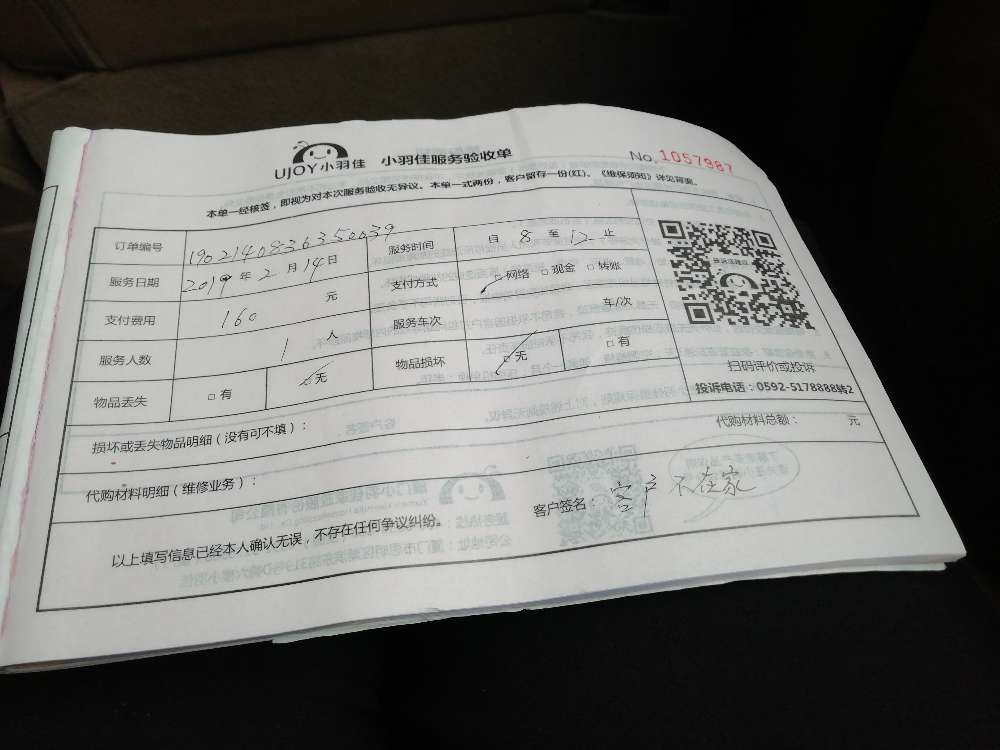 UJOY小羽佳 小羽佳服务验收单
No. 1057987
本单一经核签，即视为对本次服务验收无异议。本单一式两份，客户留存一份(红)。《维保须知》详见背面。
订单编号 1902140836350039 服务时间 自 8 至 12 止
服务日期 2019年 2 月 14 日 支付方式 □网络 □现金 □转账
支付费用 160 元 服务车次 车/次
服务人数 1 人 物品损坏 □无 □有
物品丢失 □有 □无
投诉送建议
扫码评价或投诉
投诉电话：0592-5178888转2
损坏或丢失物品明细（没有可不填）：
代购材料明细（维修业务）： 代购材料总额： 元
以上填写信息已经本人确认无误，不存在任何争议纠纷。 客户签名：客户不在家